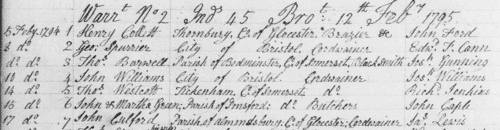 Warr.t No 2 Ind.s 45 Bro.t 12.th Feb.y 1795
5 Feby. 1794 1 Henry Collett Thornbury, C.o of Glocester Brazier & John Ford
8 d.o 2 Geo. Spurrier City of Bristol Cordwainer Edw.d T. Cann
d.o d.o 3 Tho.s Barwell Parish of Bedminster, C.o of Somerset, Black Smith Jos. Gunning
10 d.o 4 John Williams City of Bristol Cordwainer Jos. Williams
14 d.o 5 Tho.s Westcott Tickenham, C. of Somerset d.o Rich.d Jenkins
15 d.o 6 John & Martha Green; Parish of d.o Butchers John Caple
17 d.o 7 John Parish of Almondsbury, C. of Glocester; Cordwainer Ja.s Lewis